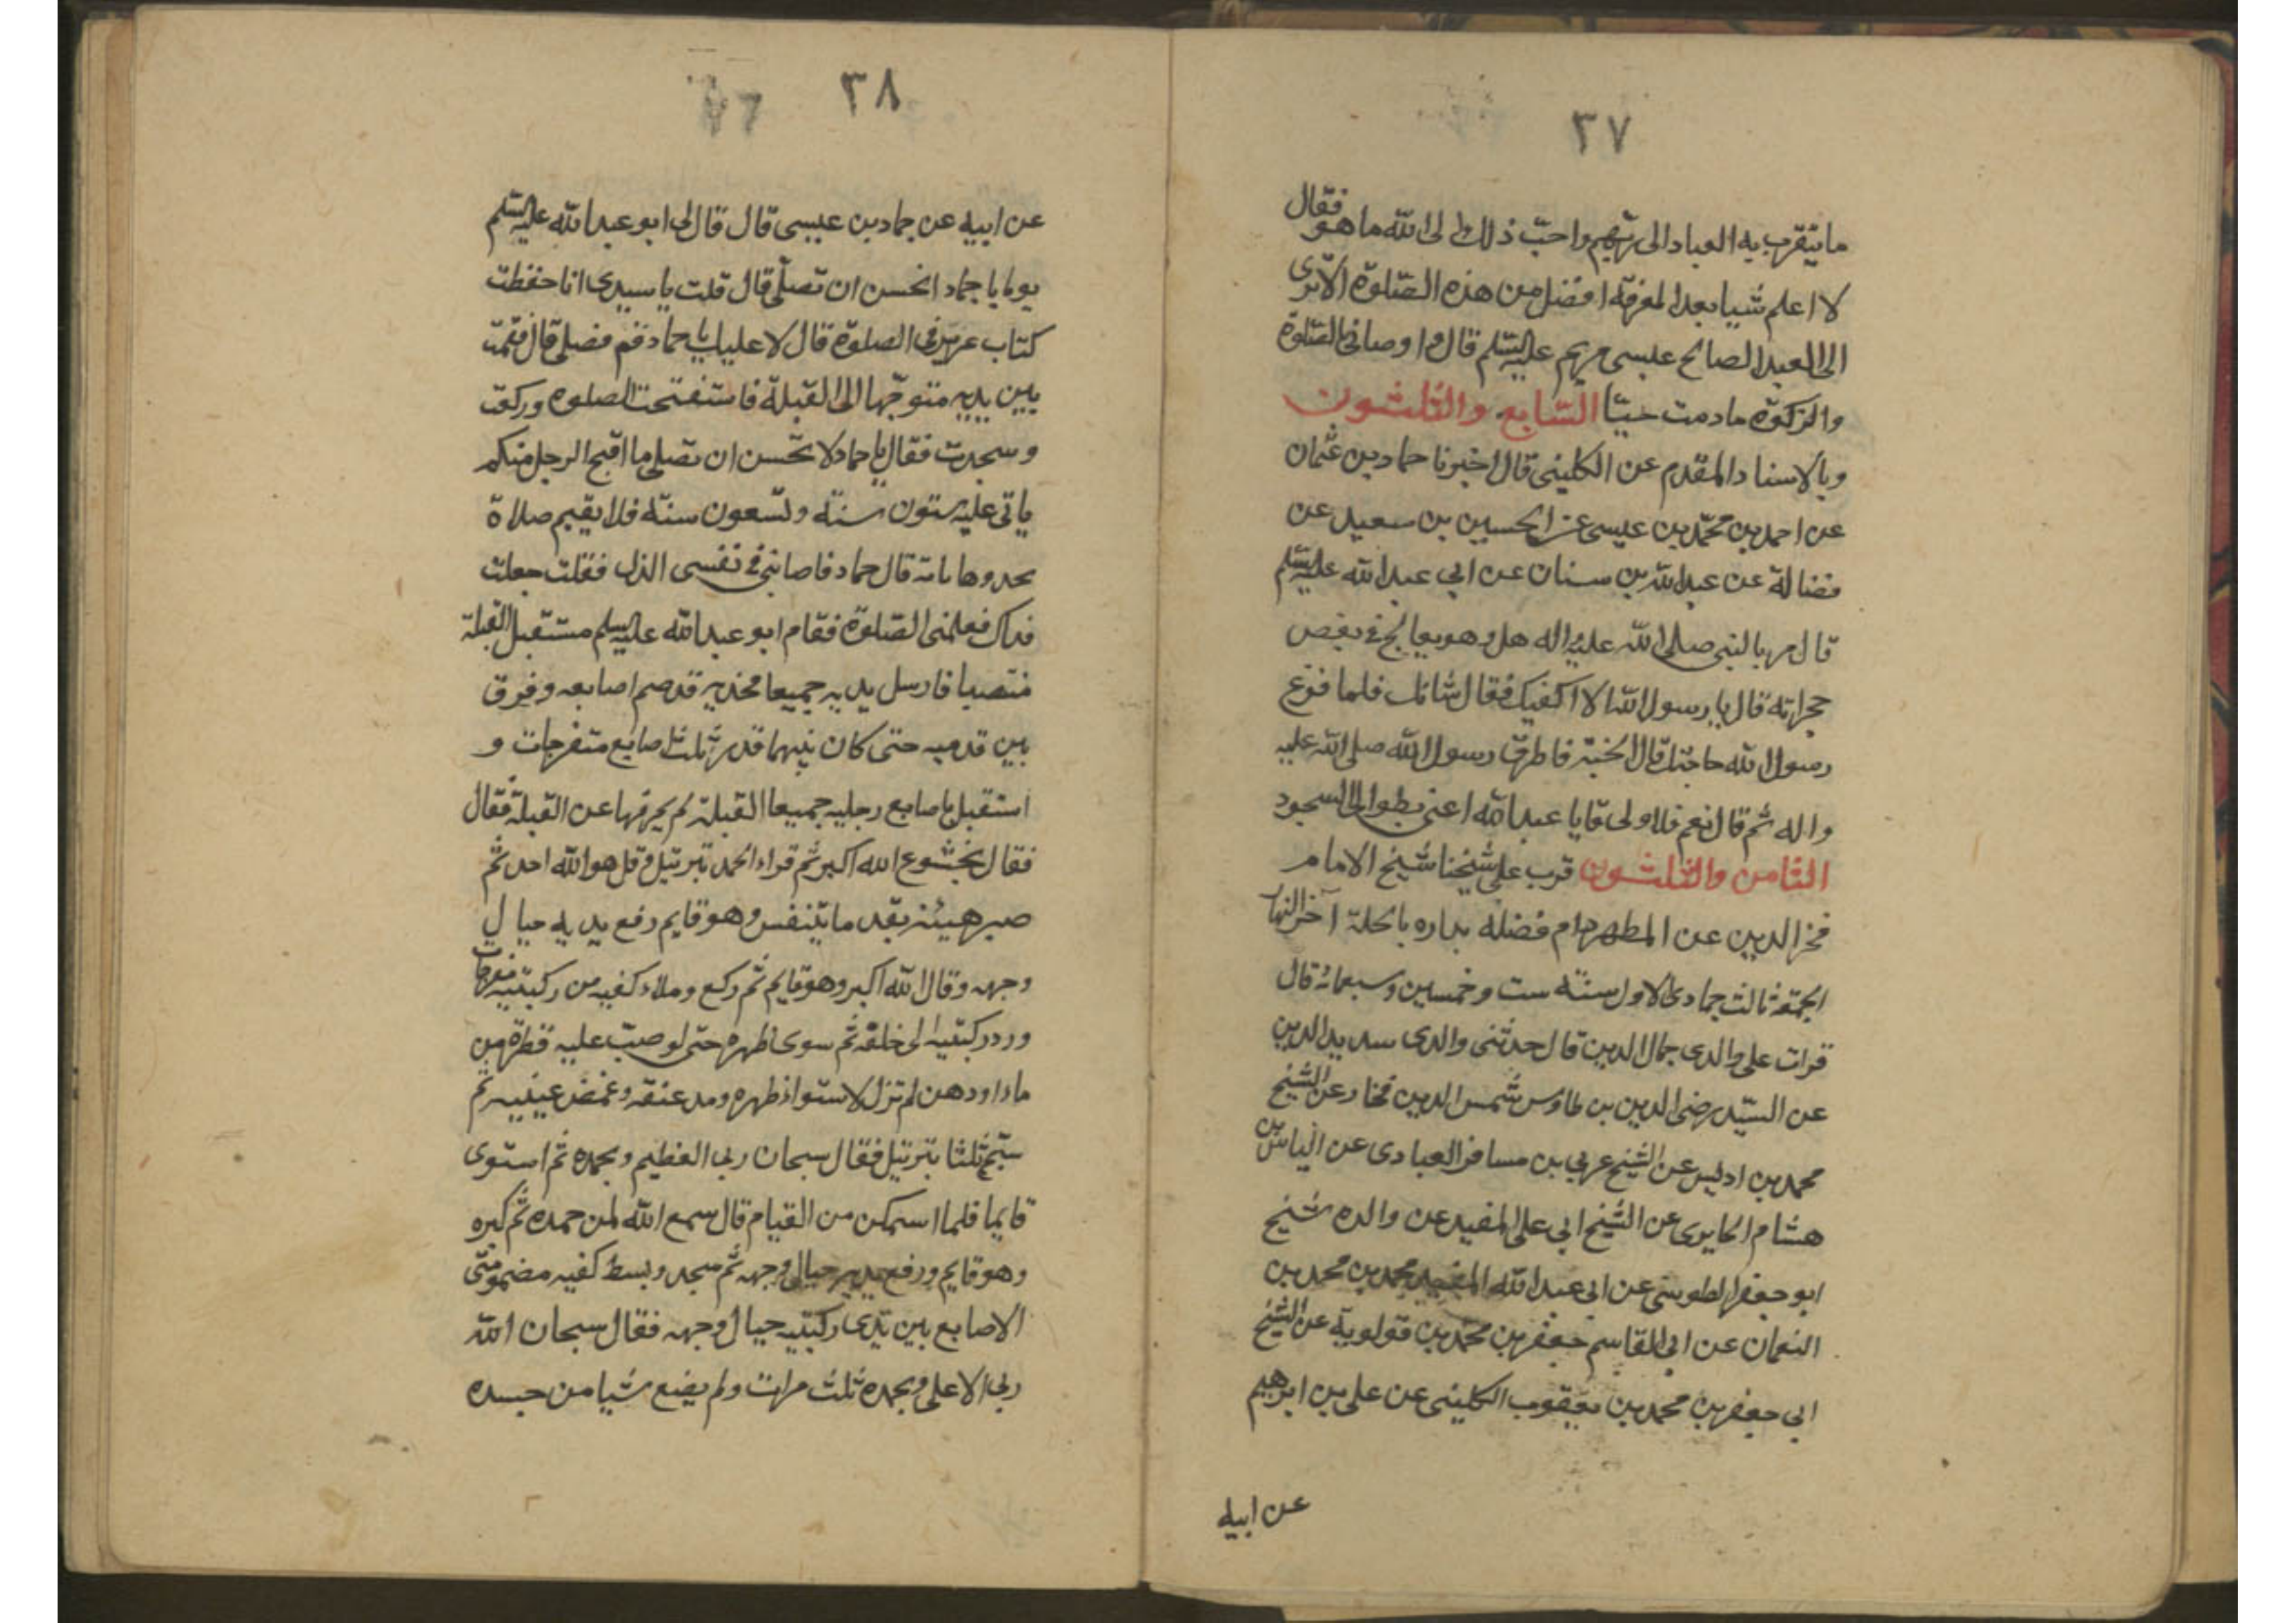 ٣٧
ما يتقرب به العباد الى ربهم واحبّ ذلك الى الله ما هو فقال
لا اعلم شيا بعد المعرفة افضل من هذه الصّلوة الا ترى
الى العبد الصالح عيسى مريم عليه السّلم قال واوصانى بالصّلوة
والزكوة ما دمت حيّا السّابع والثلثون
وبالاسناد المقدم عن الكلينى قال اخبرنا حماد بن عثمان
عن احمد بن محمّد بن عيسى عن الحسين بن سعيد عن
فضالة عن عبد الله بن سنان عن ابي عبد الله عليه السّلم
قال مر بالنبى صلى الله عليه واله هل وهو يعالج فى بعض
حجراته قال يا رسول الله الا اكفيك فقال شانك فلما فزع
رسول الله حاجتك قال الجنة فاطرق رسول الله صلى الله عليه
واله ثم قال نعم فلا ولى قا يا عبد الله اعنى بطول السجود
الثامن والثلثون قرب على شيخنا شيخ الامام
فخر الدين عن المطهر دام فضله بداره بالحلة آخر النهار
الجمعة ثالث جمادى الاول سنة ست وخمسين وسبعمائة قال
قرات على والدى جمال الدين قال حدثنى والدى سديد الدين
عن السّيد رضى الدين بن طاوس شمس الدين فخار عن الشيخ
محمد بن ادليس عن الشيخ عربي بن مسافر العبادى عن الياس بن
هشام الحايرى عن الشيخ ابي على المفيد عن والده شيخ
ابو جعفر الطوسى عن ابى عبد الله المفيد محمد بن محمد بن
النعمان عن ابى القاسم جعفر بن محمّد بن قولويه عن الشيخ
ابى جعفر بن محمد بن يعقوب الكلينى عن على بن ابرهيم
عن ابيه
٣٨
عن ابيه عن حماد بن عيسى قال قال لى ابو عبد الله عليه السّلم
يوما يا حماد اتحسن ان تصلّى قال قلت يا سيدى انا حفظت
كتاب حريز فى الصلوة قال لا عليك يا حماد قم فصلى قال فقمت
بين يديه متوجّها الى القبلة فاستفتحت الصلوه وركعت
وسجدت فقال يا حماد لا تحسن ان تصلى ما اقبح الرجل منكم
ياتى عليه ستون سنة ولسعون سنة فلا يقيم صلاة
بحدوها تامة قال حماد فاصابنى فى نفسى الذل فقلت جعلت
فداك فعلمنى الصّلوة فقام ابو عبد الله عليه السلم مستقبل القبلة
منتصبا فارسل يديه جميعا فخذيه قد صم اصابعه وفرق
بين قدميه حتى كان بينهما قدر ثلث اصابع متفرجات و
استقبل باصابع رجليه جميعا القبلة لم يحرفها عن القبلة فقال
فقال بخشوع الله اكبر ثم قراء الحمد بترتيل وقل هو الله احد ثم
صبر هيئة بقد ما يتنفس وهو قايم رفع يديه حيال
وجهه وقال الله اكبر وهو قايم ثم ركع وملاء كفيه من ركبتيه منفرجات
ورد ركبتيه الى خلفه ثم سوى ظهره حتى لو صبّ عليه قطرة من
ماء او دهن لم تزل لاستواء ظهره ومد عنقه وغمض عينيه ثم
سبّح ثلثا بترتيل فقال سبحان ربى العظيم وبحمده ثم استوى
قايما فلما استمكن من القيام قال سمع الله لمن حمده ثم كبره
وهو قايم ورفع يديه حيال وجهه ثم سجد وبسط كفيه مضمومتى
الاصابع بين يدى ركبتيه حيال وجهه فقال سبحان الله
ربى الاعلى وبحمده ثلث مرات ولم يضع شيا من جسده